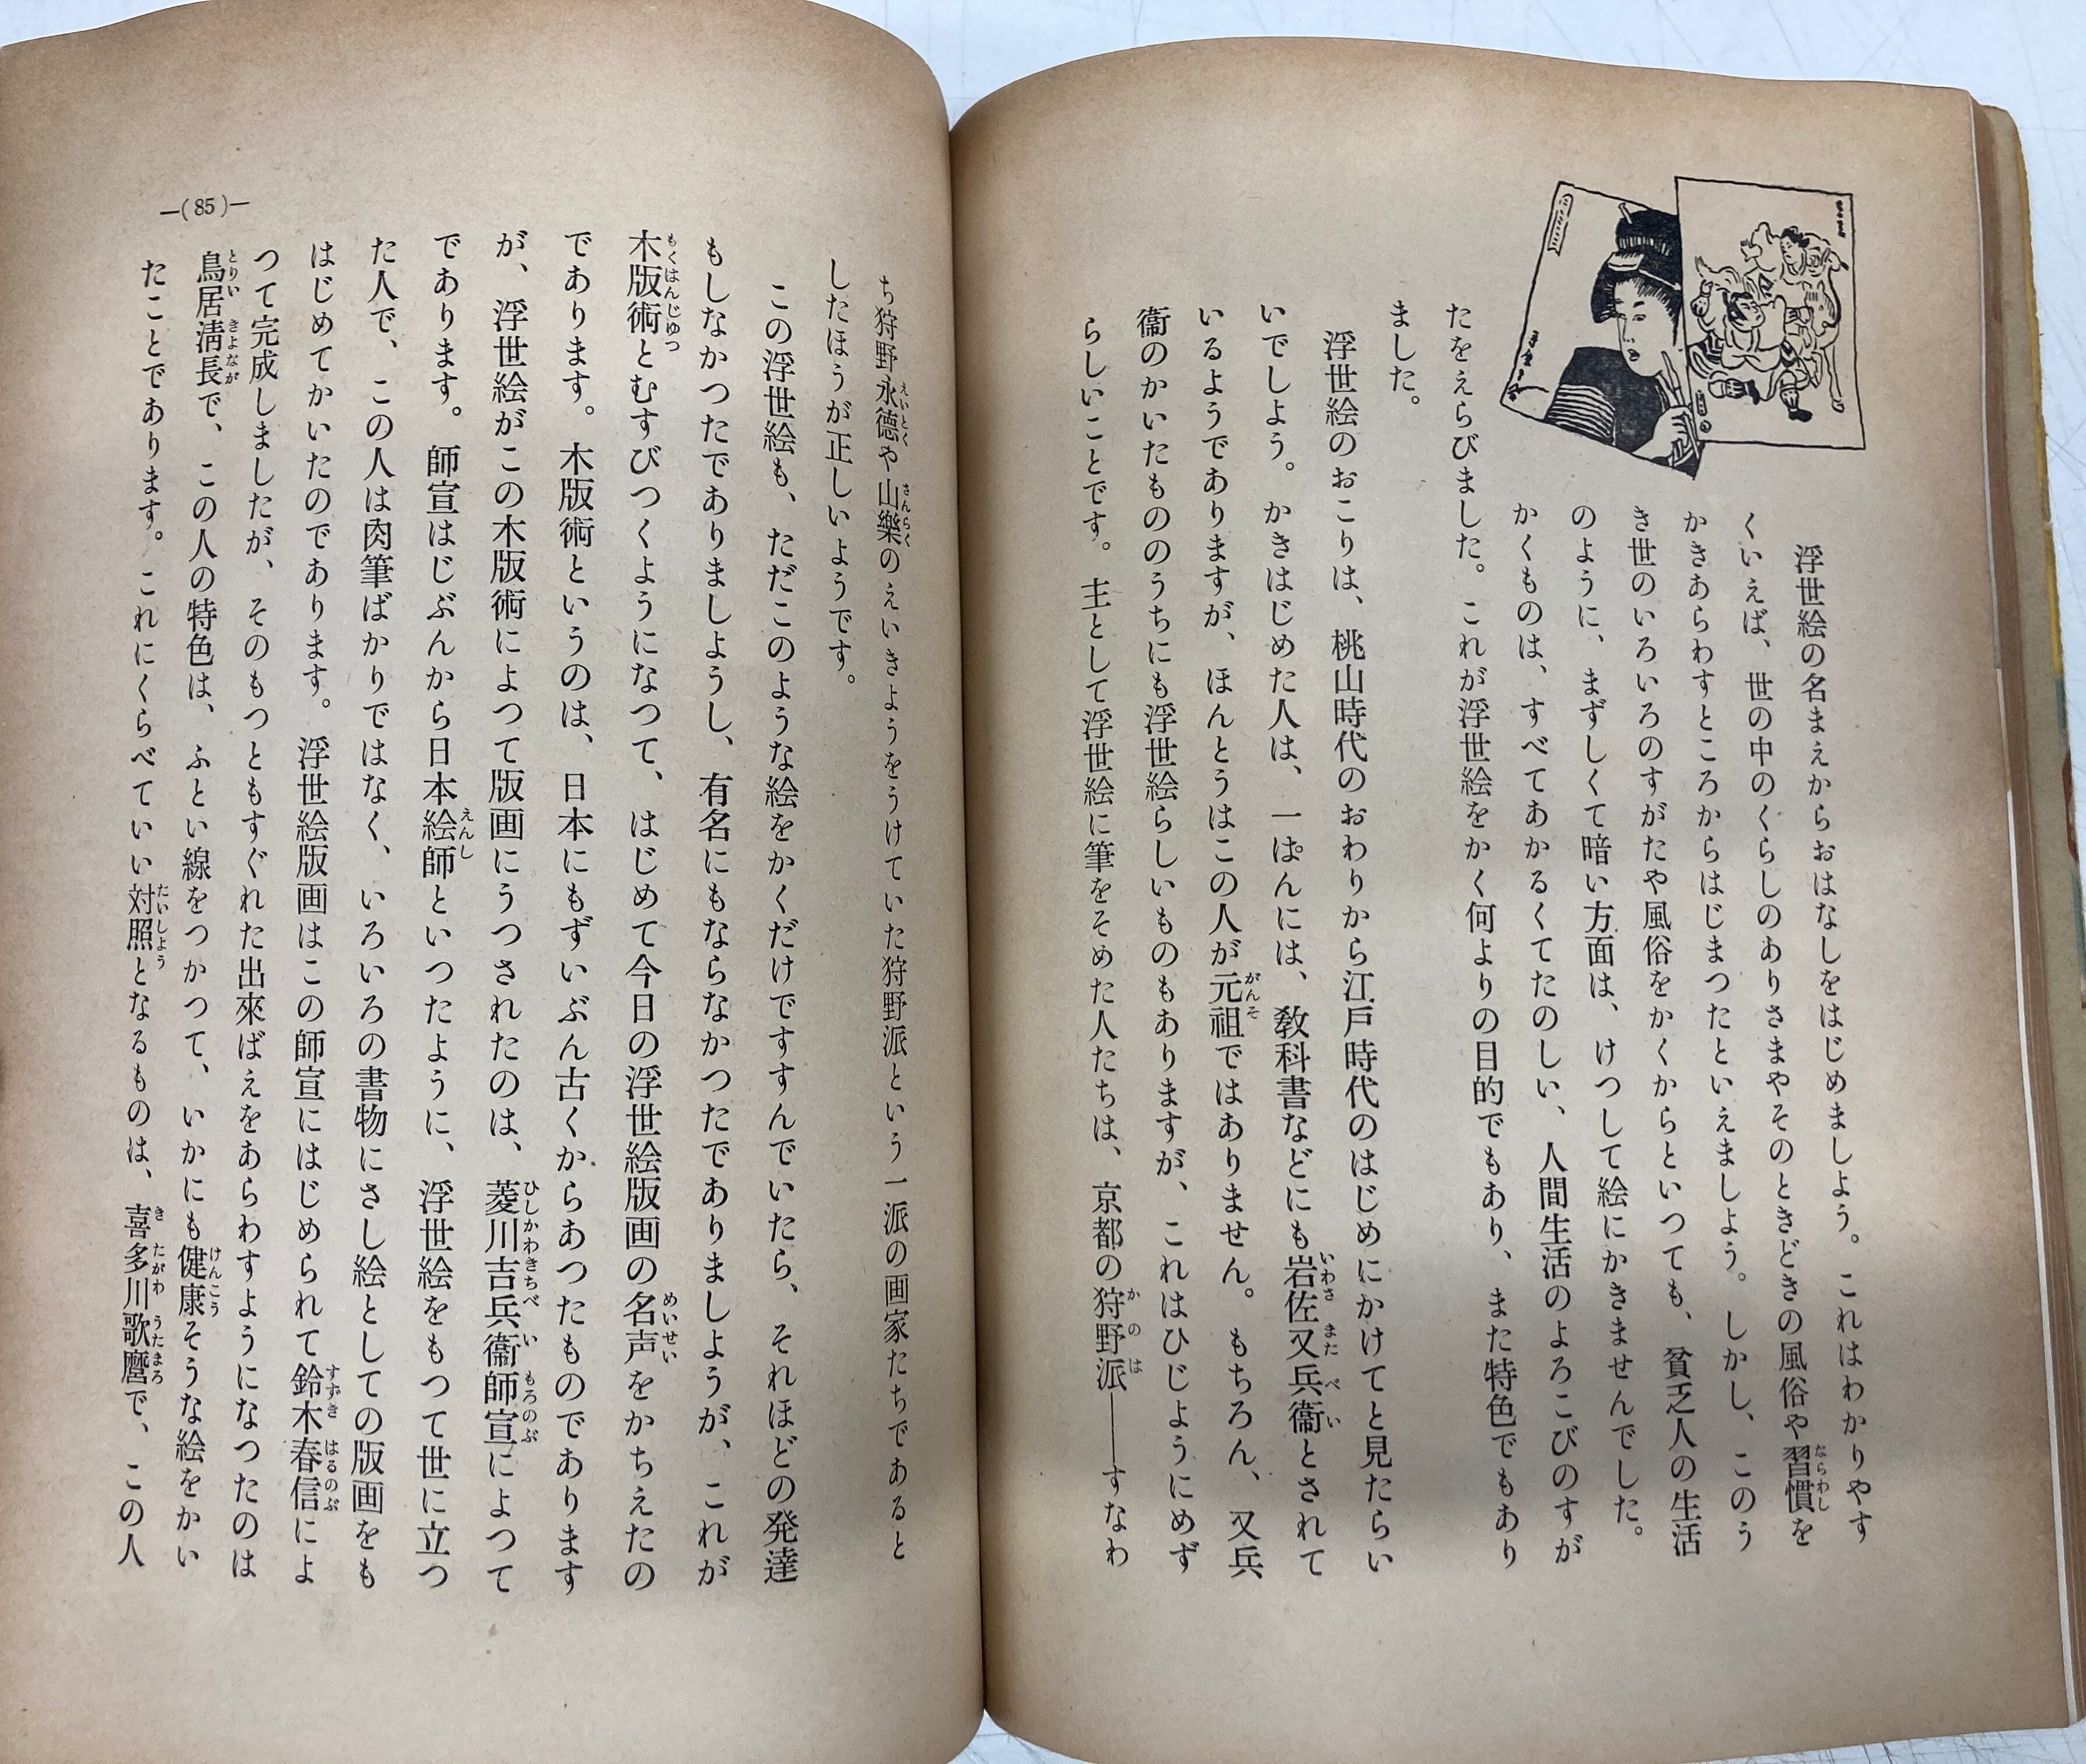 浮世絵の名まえからおはなしをはじめましよう。これはわかりやす
くいえば、世の中のくらしのありさまやそのときどきの風俗や習慣を
かきあらわすところからはじまつたといえましよう。しかし、このう
き世のいろいろのすがたや風俗をかくからといつても、貧乏人の生活
のように、まずしくて暗い方面は、けつして絵にかきませんでした。
かくものは、すべてあかるくてたのしい、人間生活のよろこびのすが
たをえらびました。これが浮世絵をかく何よりの目的でもあり、また特色でもあり
ました。
浮世絵のおこりは、桃山時代のおわりから江戸時代のはじめにかけてと見たらい
いでしよう。かきはじめた人は、一ぱんには、教科書などにも岩佐又兵衞とされて
いるようでありますが、ほんとうはこの人が元祖ではありません。もちろん、又兵
衞のかいたもののうちにも浮世絵らしいものもありますが、これはひじようにめず
らしいことです。主として浮世絵に筆をそめた人たちは、京都の狩野派――すなわ
ち狩野永德や山樂のえいきようをうけていた狩野派という一派の画家たちであると
したほうが正しいようです。
この浮世絵も、ただこのような絵をかくだけですすんでいたら、それほどの発達
もしなかつたでありましようし、有名にもならなかつたでありましようが、これが
木版術とむすびつくようになつて、はじめて今日の浮世絵版画の名声をかちえたの
であります。木版術というのは、日本にもずいぶん古くからあつたものであります
が、浮世絵がこの木版術によつて版画にうつされたのは、菱川吉兵衞師宣によつて
であります。師宣はじぶんから日本絵師といつたように、浮世絵をもつて世に立つ
た人で、この人は肉筆ばかりではなく、いろいろの書物にさし絵としての版画をも
はじめてかいたのであります。浮世絵版画はこの師宣にはじめられて鈴木春信によ
つて完成しましたが、そのもつともすぐれた出來ばえをあらわすようになつたのは
鳥居淸長で、この人の特色は、ふとい線をつかつて、いかにも健康そうな絵をかい
たことであります。これにくらべていい対照となるものは、喜多川歌麿で、この人
—(85)—